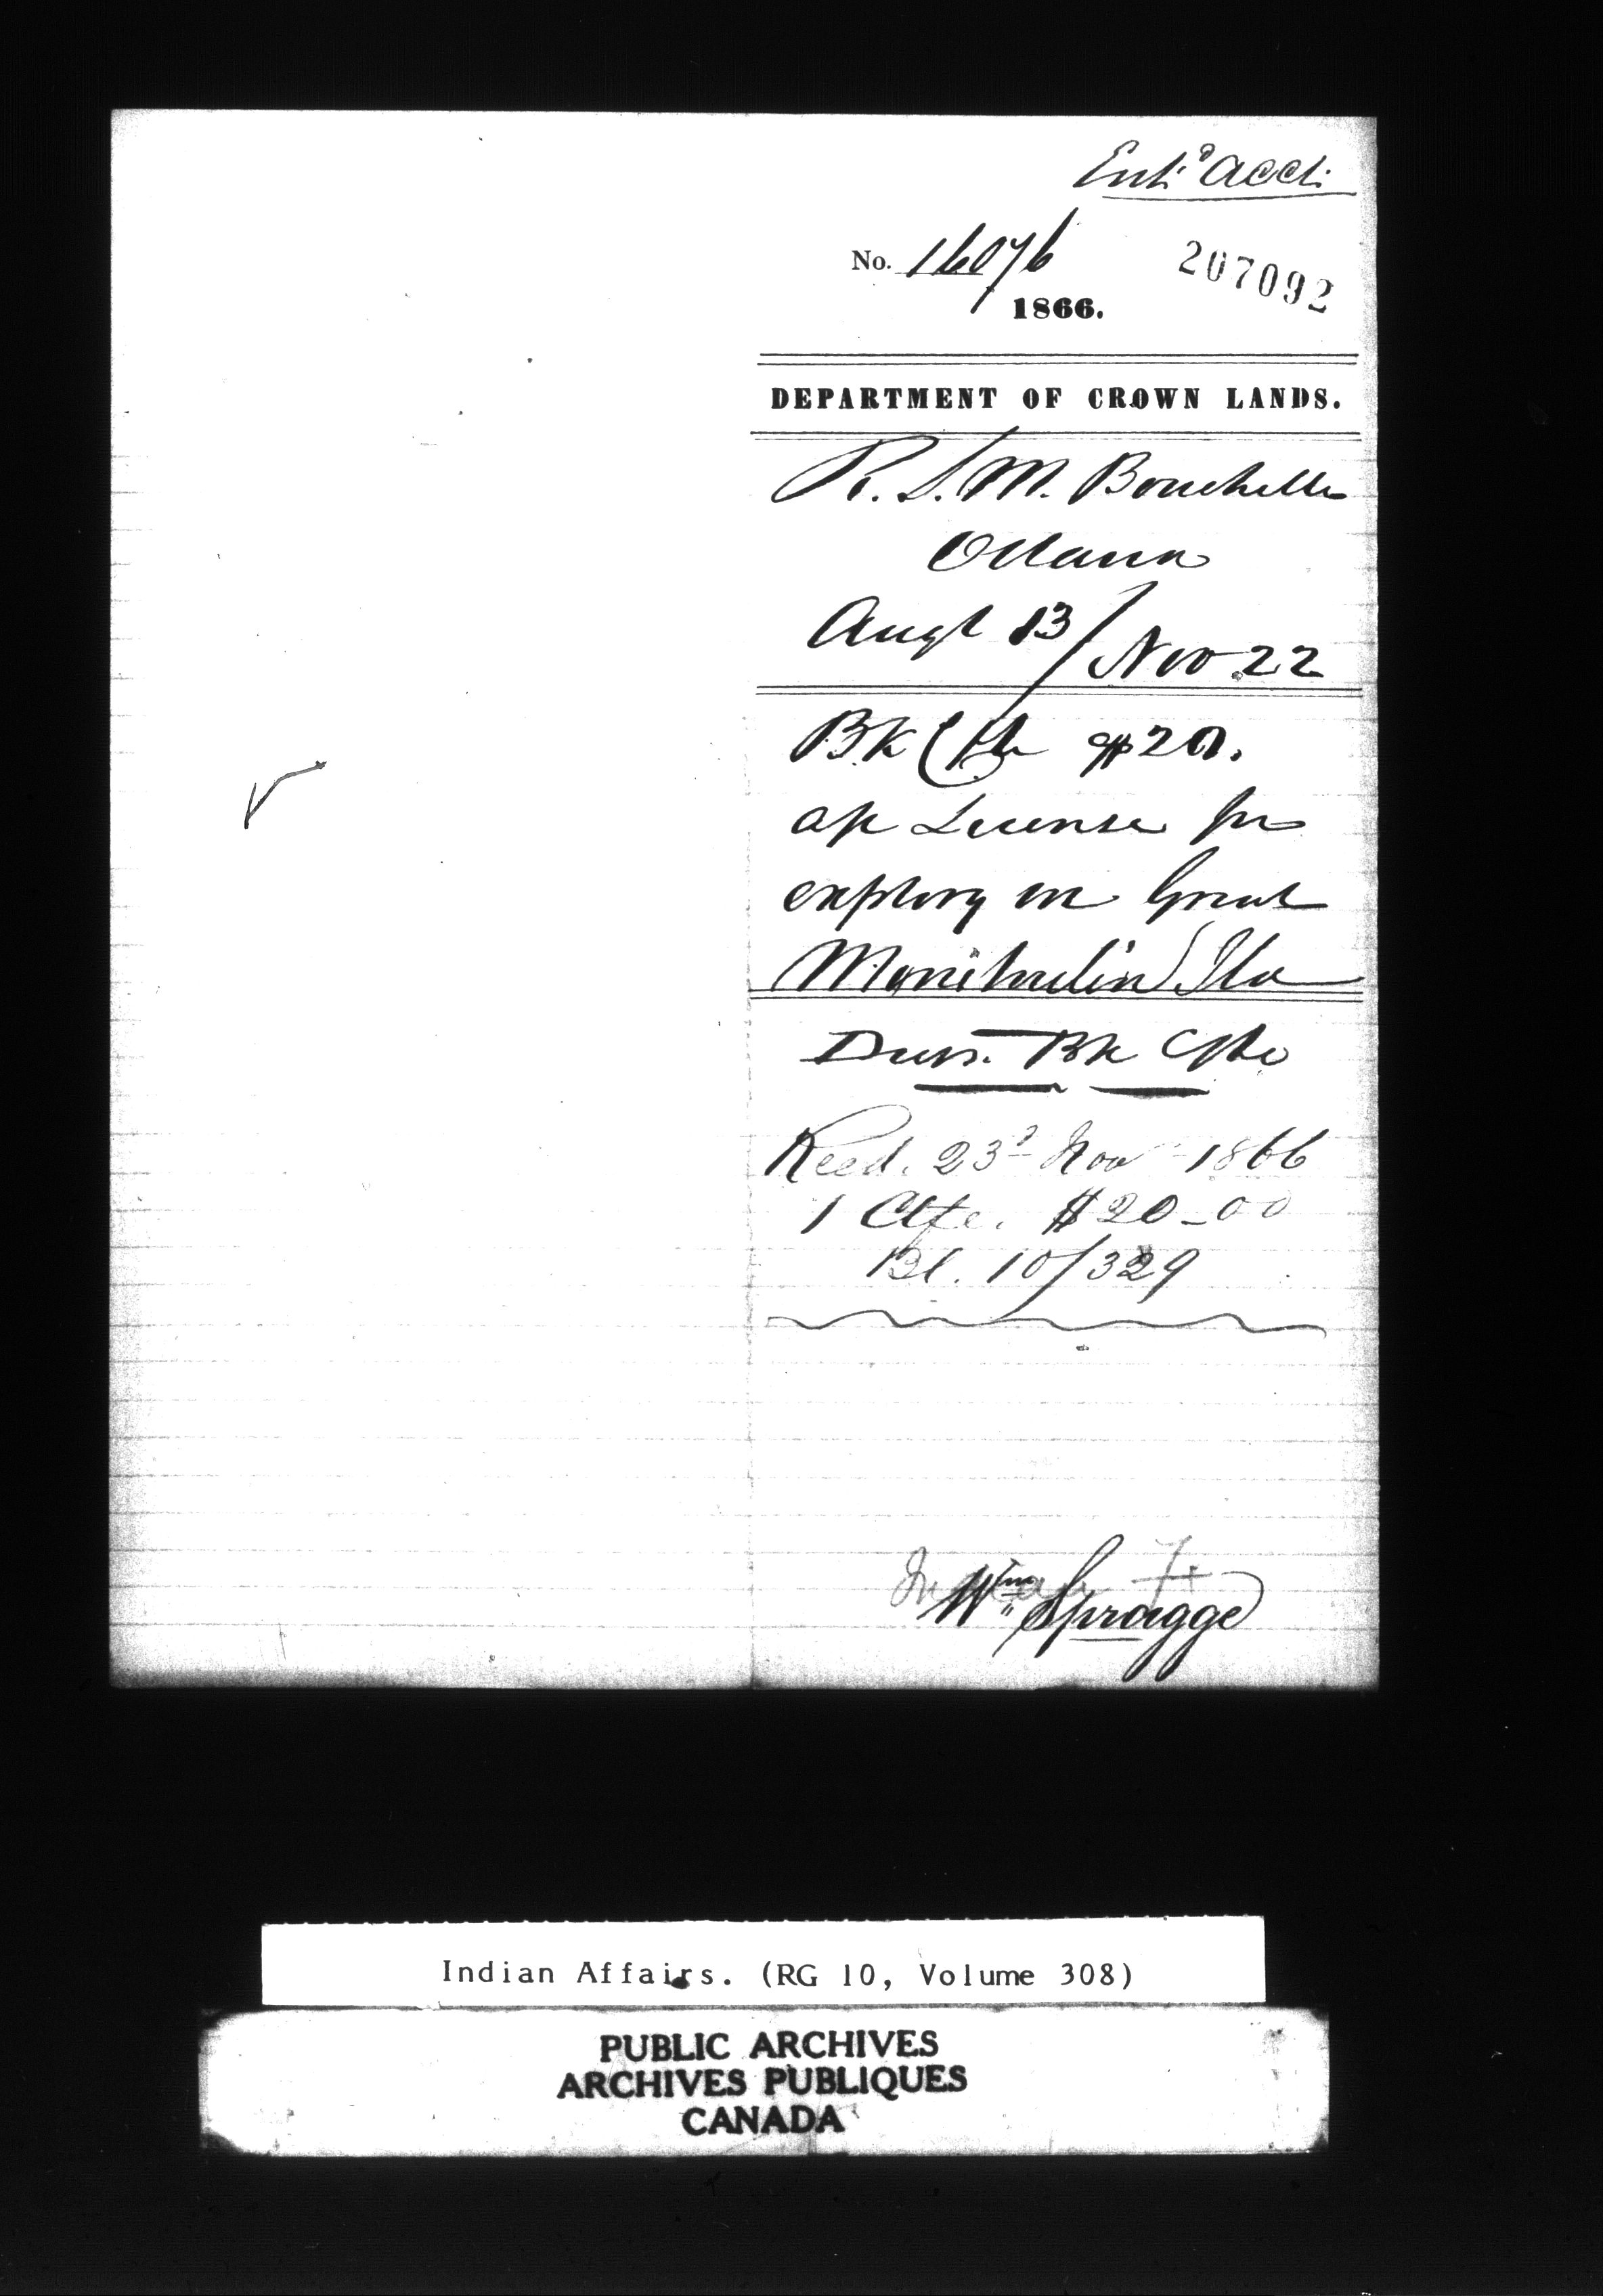 Entd Acct.
No. 16076
207092
1866.
DEPARTMENT OF CROWN LANDS.
R. S. M. Bouchette
Ottawa
Augt 13/Nov 22
Bk Cfte $20.
License for
explorg on Great
Manitoulin Isld
Bk Cfte
Recd. 23d Nov 1866
1 Ctfe. $20-00
Bl. 10/329
Indian
Wm Spragge
Indian Affairs. (RG 10, Volume 308)
PUBLIC ARCHIVES
ARCHIVES PUBLIQUES
CANADA